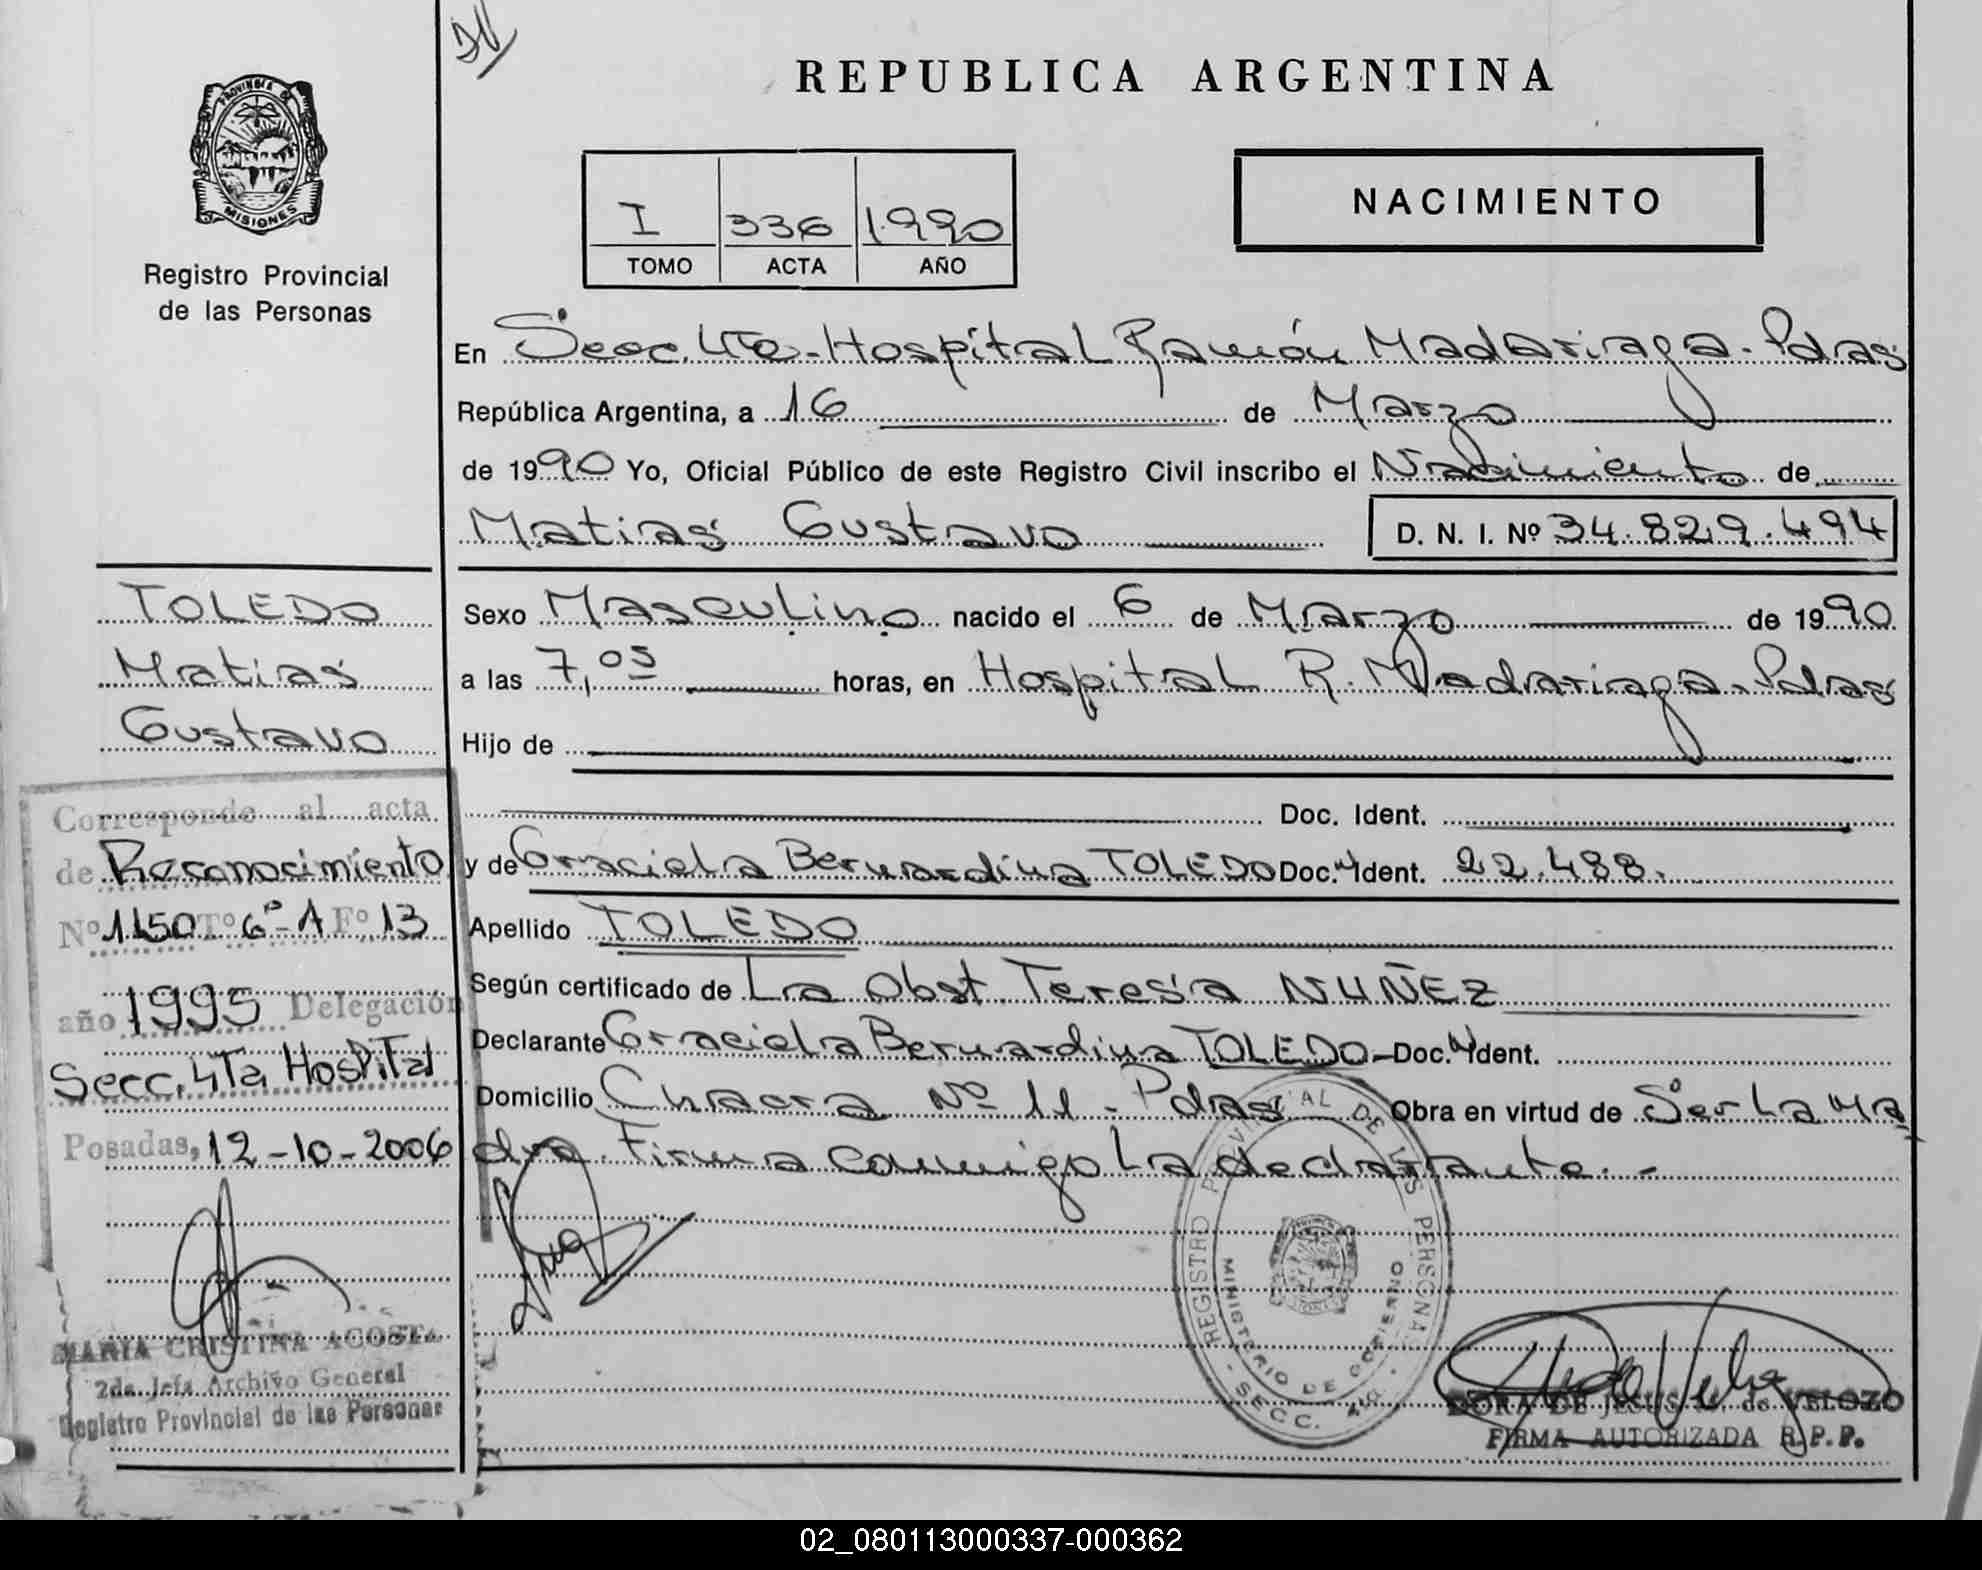 REPUBLICA ARGENTINA
PROVINCIA DE
MISIONES
Registro Provincial
de las Personas
I 336 1990
TOMO ACTA AÑO
NACIMIENTO
En Secc. 4ta - Hospital Ramón Madariaga - Pdas
República Argentina, a 16 de Marzo
de 1990 Yo, Oficial Público de este Registro Civil inscribo el Nacimiento de
Matias Gustavo D. N. I. Nº 34.829.494
Sexo Masculino nacido el 6 de Marzo de 1990
a las 7,05 horas, en Hospital R. Madariaga - Pdas
Hijo de
Doc. Ident.
y de Graciela Bernardina TOLEDO Doc. Ident. 22.488.
Apellido TOLEDO
Según certificado de La Obst. Teresa NUÑEZ
Declarante Graciela Bernardina TOLEDO - Doc. Ident.
Domicilio Chacra Nº 11 - Pdas Obra en virtud de Ser La Ma
dre. Firma conmigo La declarante. -
TOLEDO
Matias
Gustavo
Corresponde al acta
de Reconocimiento
Nº 1150 Tº 6º - A Fº 13
año 1995 Delegación
Secc. 4Ta Hospital
Posadas, 12-10-2006
MARIA CRISTINA ACOSTA
2da. Jefa Archivo General
Registro Provincial de las Personas
REGISTRO PROVINCIAL DE LAS PERSONAS
MINISTERIO DE GOBIERNO
SECC. 4ta
DORA DE JESUS de VELOZO
FIRMA AUTORIZADA R.P.P.
02_080113000337-000362